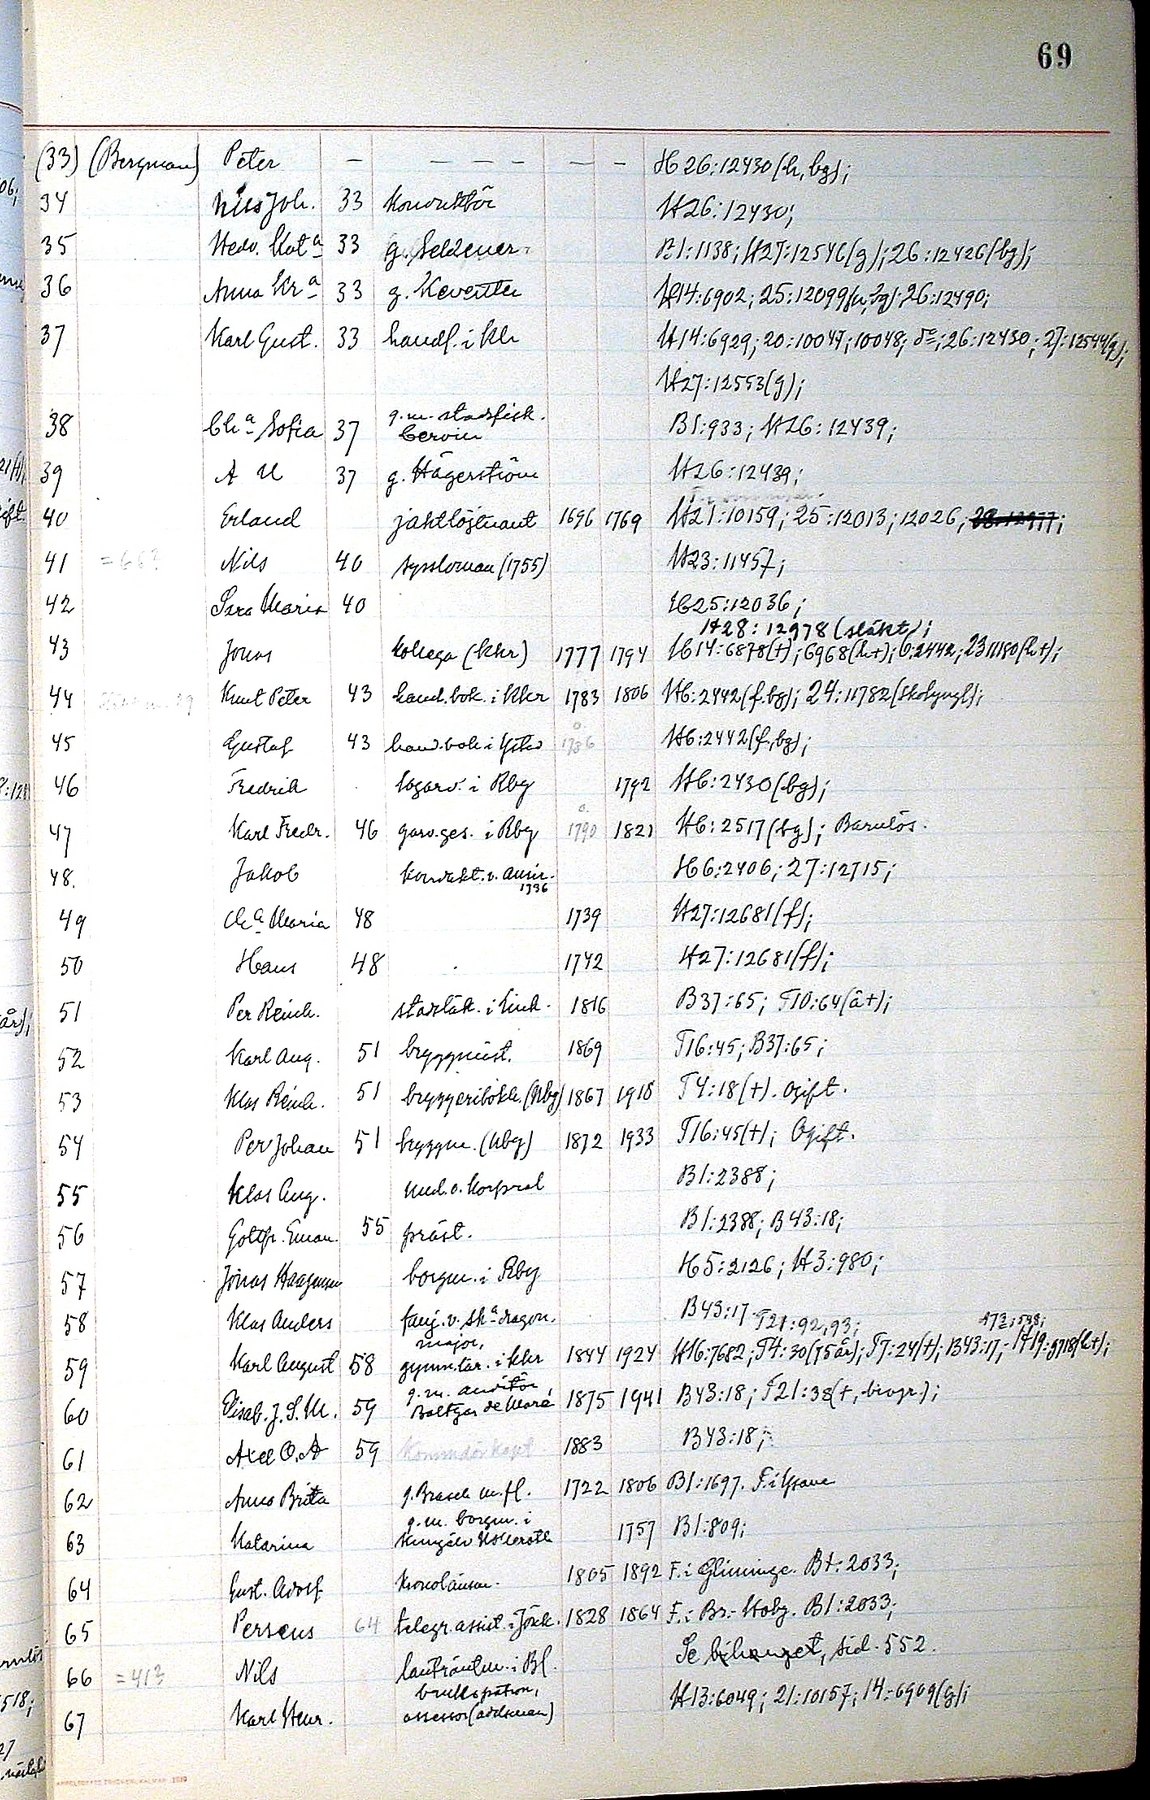 69
(33) (Bergman) Peter — — — — — — — H26:12430(h, bg);
34 Nils Joh. 33 Konduktör H26:12430;
35 Hedv. Kat a 33 g. Seldener B1:1138; H27:12546(g); 26:12426(bg);
36 Anna Kr a 33 g. Keventer H14:6902; 25:12099(h, bg); 26:12490;
37 Karl Gust. 33 handl. i Khr H14:6929; 20:10047; 10048; 26:12430; 27:12544(g);
H27:12553(g);
38 Ch a Sofia 37 g. m. stadsfisk. Cervin B1:933; H26:12439;
39 A U 37 g. Hägerström H26:12439;
40 Erland jaktlöjtnant 1696 1769 H21:10159; 25:12013; 12026;
41 =66? Nils 40 syssloman (1755) H23:11457;
42 Sara Maria 40 H25:12036;
H28:12978 (släkt);
43 Jonas kollega (Khr) 1777 1794 H14:6878(+); 6968(h+); 6:2442; 23:11180(h+);
44 Knut Peter 43 hand.bok. i Khr 1783 1806 H6:2442(f. bg); 24:11782
45 Gustaf 43 hand.bok i Ystad 1786 H6:2442(f, bg);
46 Fredrik logarv. i Rby 1792 H6:2430(bg);
47 Karl Fredr. 46 garv.ges. i Rby 1790 1821 H6:2517(bg); Barnlös.
48. Jakob kondukt. v. amir. 1736 H6:2406; 27:12715;
49 Ch a Maria 48 1739 H27:12681(f);
50 Hans 48 1742 H27:12681(f);
51 Per Reinh. stadsläk. i Link. 1816 B37:65; T10:64(å+);
52 Karl Aug. 51 bryggmäst. 1869 T16:45; B37:65;
53 Klas Reinh. 51 bryggeribokh. (Nbg) 1867 1918 T4:18(+). Ogift.
54 Per Johan 51 bryggm. (Nbg) 1872 1933 T16:45(+); Ogift.
55 Klas Aug. und.o. korpral B1:2388;
56 Gottfr. Eman. 55 präst. B1:2388; B43:18;
57 Jonas Haagman borgm. i Rby H5:2126; H3:980;
58 Klas Anders fanj. v. Sk a dragon. B43:17 T21:92,93;
59 Karl August 58 major, gymn.lär. i Khr 1844 1924 H16:7682; T4:30(75 år); T7:24(+); B43:17; H9:3718(h+);
60 Elisab. J. S. M. 59 g. m. auditör Baltzar de Maré 1875 1941 B43:18; T21:38(+, biogr.);
61 Axel O. A 59 Kommendörkapt 1883 B43:18;
62 Anna Brita g. Brasch m. fl. 1722 1806 B1:1697. F. i Ysane
63 Katarina g. m. borgm. i Kungälv 1757 B1:809;
64 Gust. Adolf Kronolänsm. 1805 1892 F. i Glimminge. B1:2033;
65 Perseus 64 telegr.assist. i Jönk. 1828 1864 F. i Br.-Hoby. B1:2033;
66 =41? Nils lanträntm. i Bl. Se bihanget, sid. 552.
67 Karl Henr. brukspatron, assessor (adelsman) H13:6049; 21:10157; 14:6909(g);